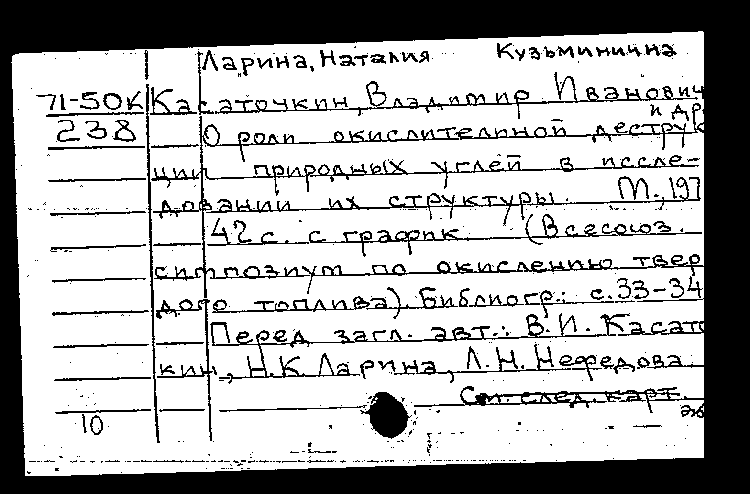 Ларина, Наталия Кузьминична
71-50К Касаточкин, Владимир Иванович
и др.
238 О роли окислителиной деструк
ции природных углей в иссле-
довании их структуры. М., 197
42 с. с график. (Всесоюз.
симпозиум по окислению твер
дого топлива). Библиогр.: с. 33-34
Перед загл. авт.: В.И. Касато
кин, Н.К. Ларина, Л.Н. Нефедова.
См. след. карт.
10